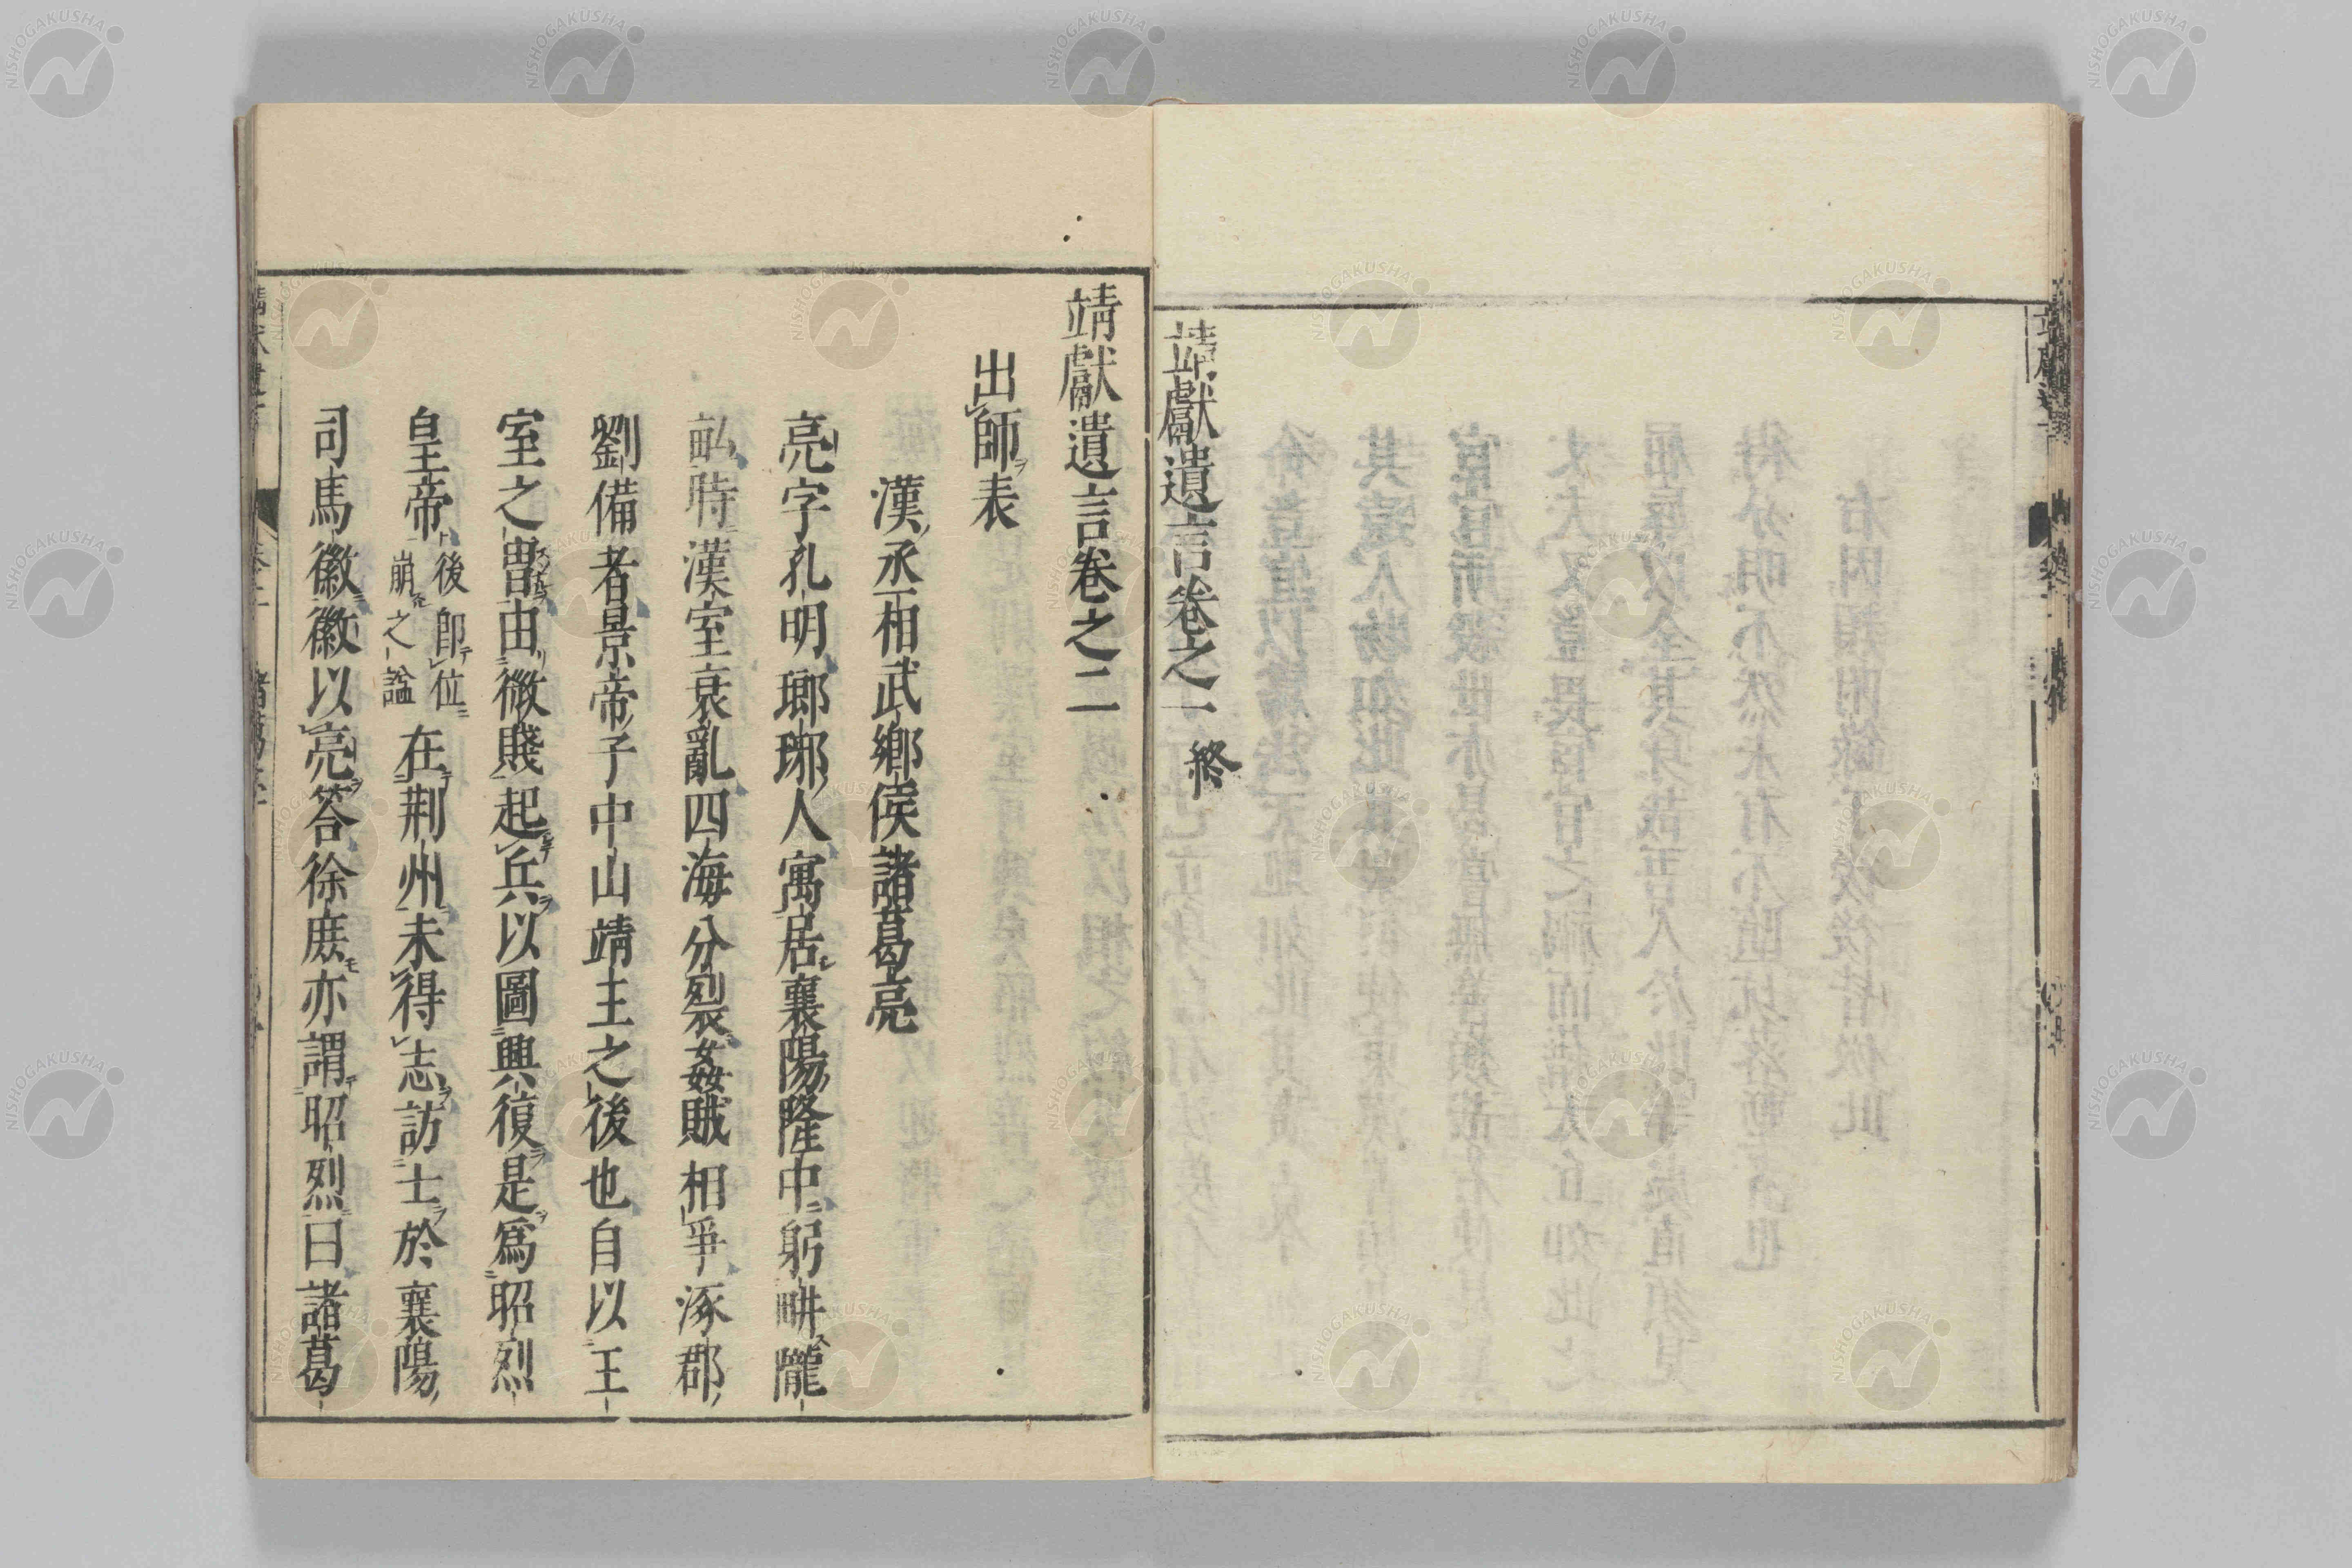 靖獻遺言卷之一 終
靖獻遺言卷之二
出師ヲ表
漢丞相武鄉侯諸葛亮
亮字孔明瑯琊人寓居襄陽隆中躬畊隴
畝時漢室衰亂四海分裂姦賊相爭涿郡
劉備者景帝子中山靖王之後也自以王
室之冑由微賤起兵ヲ以圖興復ヲ是ヲ爲昭烈
皇帝
後卽位
崩之謚
在荆州未得志ヲ訪士ヲ於襄陽
司馬徽徽以亮ヲ答徐庶モ亦謂昭烈曰諸葛
NISHOGAKUSHA